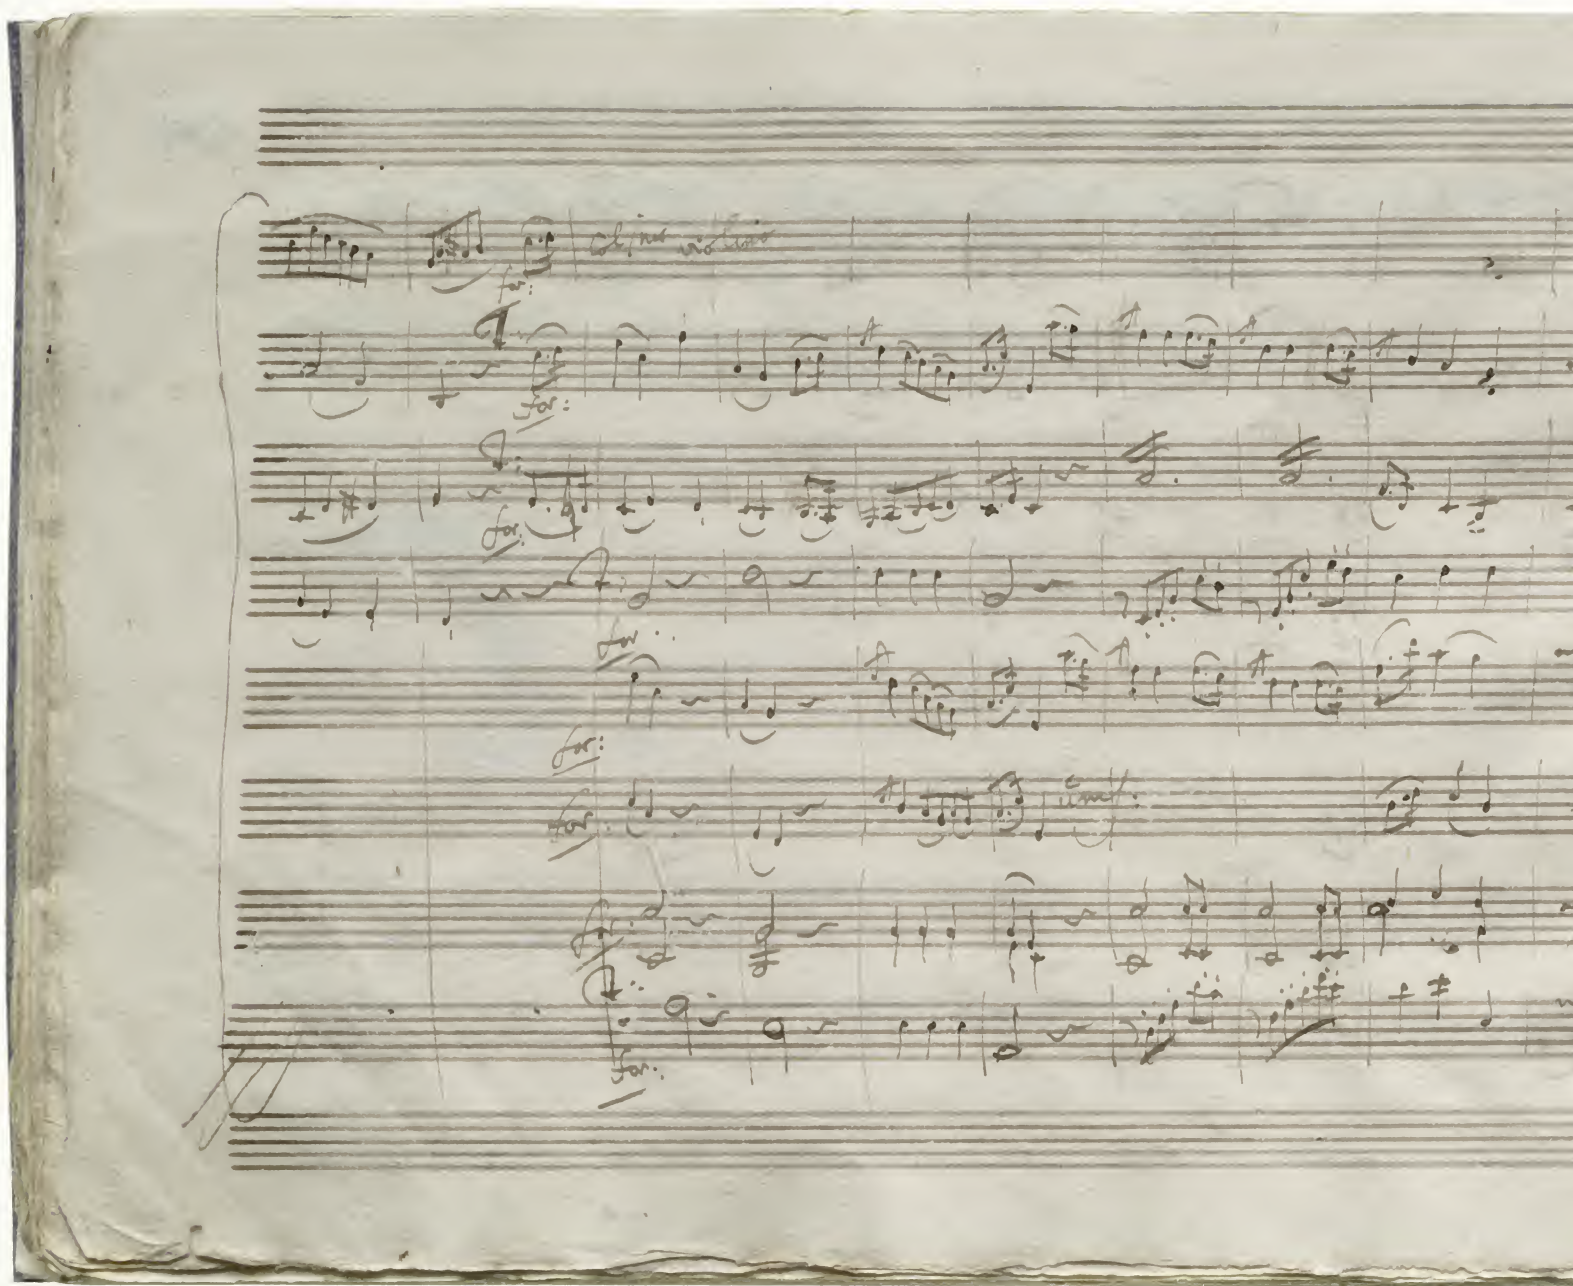 for:
col 1mo violino
for:
for:
for:
for:
for:
unis:
for:
for: